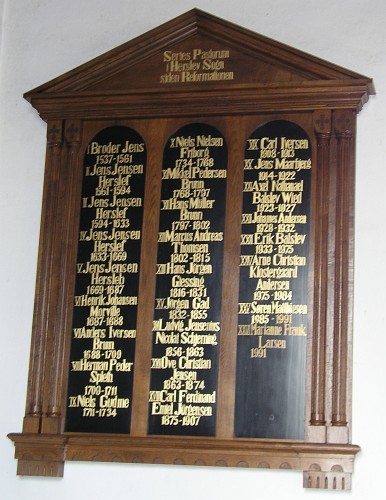 Series Pastorum
i Herslev Sogn
siden Reformationen
I Broder Jens
1537-1561
II Jens Jensen
Herslef
1561-1594
III Jens Jensen
Herslef
1594-1633
IV Jens Jensen
Herslef
1633-1669
V Jens Jensen
Hersleb
1669-1687
VI Henrik Johansen
Morville
1687-1688
VII Anders Iversen
Brun
1688-1709
VIII Herman Peder
Spleth
1709-1711
IX Niels Gudme
1711-1734
X Niels Nielsen
Friborg
1734-1768
XI Mikkel Pedersen
Brunn
1768-1797
XII Hans Müller
Brunn
1797-1802
XIII Marcus Andreas
Thomsen
1802-1815
XIV Hans Jürgen
Giessing
1816-1831
XV Jørgen Gad
1832-1855
XVI Ludvig Jensenius
Nicolai Schjerning
1856-1863
XVII Ove Christian
Jensen
1863-1874
XVIII Carl Ferdinand
Emiel Jörgensen
1875-1907
XIX Carl Iversen
1908-1913
XX Jens Maarbjerg
1914-1922
XXI Axel Nathanael
Balslev Wied
1923-1927
XXII Johannes Andersen
1928-1932
XXIII Erik Balslev
1933-1975
XXIV Arne Christian
Klostergaard
Andersen
1975-1984
XXV Søren Matthiesen
1985-1991
XXVI Marianne Frank
Larsen
1991